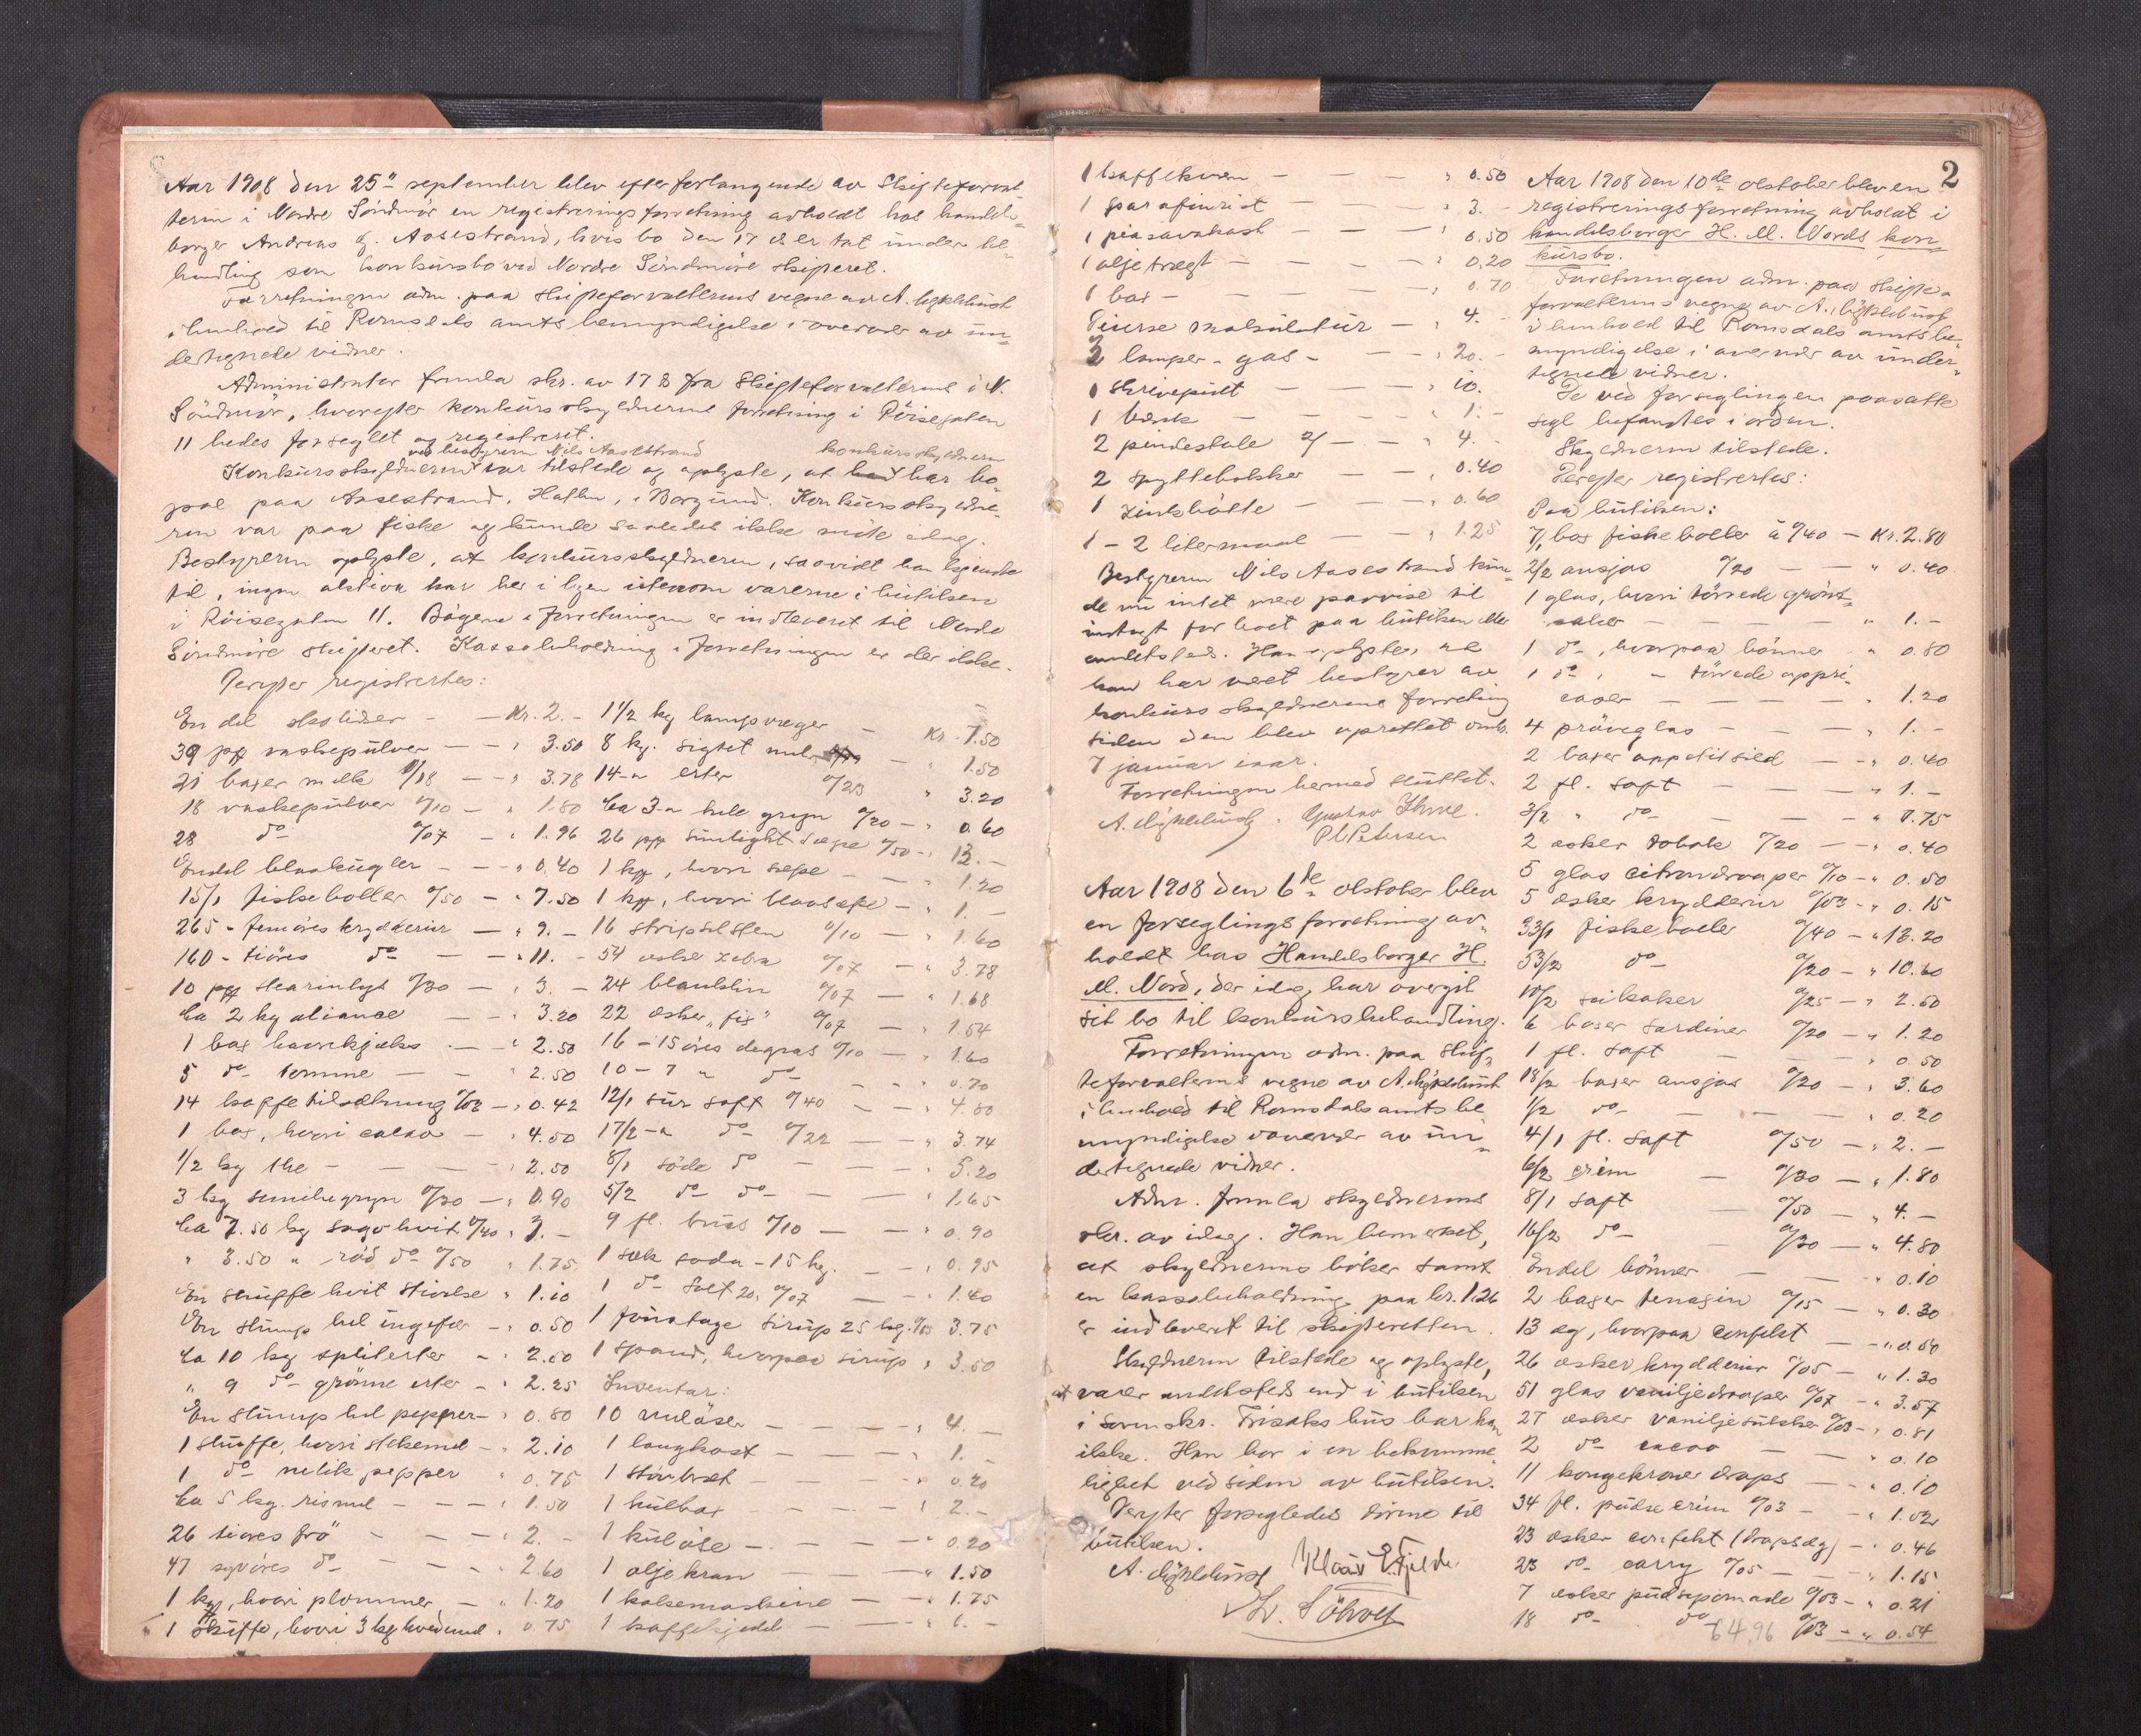 Aar 1908 den 25de september blev efter forlangende av Skifteforval-
teren i Nordre Söndmör en registreringsforretning avholdt hos handels-
borger Andreas J. Aasestrand, hvis bo den 17 ds er tat under be-
handling som konkursbo ved Nordre Söndmöre skifteret.
Forretningen adm. paa skifteforvalterens vegne av A. Myklebust
i henhold til Romsdals amts bemyndigelse i overvær av un-
dertegnede vidner.
Administrator fremla skr. av 17 ds fra Skifteforvalteren i N.
Söndmör, hvorefter konkursskyldnerens forretning i Röisegaten
11 bedes forseglet og registreret.
ved bestyreren Nils Aasestrand konkursskyldneren
Konkursskyldneren var tilstede og oplyste, at har bo-
pæl paa Aasestrand, Hatlen, i Borgund. Konkursskyldne-
ren var paa fiske og kunde saaledes ikke möte idag.
Bestyreren oplyste, at konkursskyldneren, saavidt han kjendte
til, ingen aktiva har her i byen utenom varerne i butikken
i Röisegaten 11. Bögerne i forretningen er indleveret til Nordre
Söndmöre skifteret. Kassabeholdning i forretningen er der ikke.
Derefter registrertes:
En del skolisser - - Kr. 2. -
39 pk vaskepulver - - " 3.50
21 baxer melk a/18 - - " 3.78
18 vaskepulver a/10 - " 1.80
28 do a/07 - " 1.96
Endel blaakugler - - " 0.40
15/1 fiskeboller a/50 - " 7.50
265 - femöres krydderier - " 9. -
160 - tiöres do - " 11. -
10 pk stearinlys a/30 - " 3. -
Ca 2 kg aliance - " 3.20
1 bax havrekjæks - " 2.50
5 do tomme - - " 2.50
14 kaffetilsætning a/03 - " 0.42
1 bax, hvori cacao - " 4.50
1/2 kg the - - - " 2.50
3 kg semulegryn a/30 - " 0.90
Ca 7.50 kg sago hvit a/40 " 3. -
" 3.50 " röd do a/50 " 1.75
En skuffe hvit stivelse " 1.10
En slump hel ingefær - " 0.50
Ca 10 kg spliterter - " 2.50
" 9 do grönne erter - " 2.25
En slump hel pepper - " 0.80
1 skuffe, hvori stekemel - " 2.10
1 do nellik pepper " 0.75
Ca 5 kg. rismel - - - " 1.50
26 tiöres frö - - - " 2. -
47 syvöres do - - - " 2.60
1 kg, hvori plommer - " 1.20
1 skuffe, hvori 3 kg hvedemel " 0.75
1 1/2 kg lampevæger - Kr. 7.50
8 kg. sigtet mel - " 1.50
14 - " erter a/23 " 3.20
Ca 3 - " hele gryn a/20 - " 0.60
26 pk sunlight sæpe a/50 - " 13. -
1 kg, hvori sæpe - - " 1.20
1 kg, hvori blaasæpe - " 1. -
16 stripsilsten a/10 - " 1.60
54 æsker zebra a/07 - " 3.78
24 blanklin a/07 - " 1.68
22 æsker "fix" a/07 - " 1.54
16 - 15 öres degras a/10 - " 1.60
10 - 7 " do - - " 0.70
12/1 sur saft a/40 - - " 4.80
17/2 - " do a/22 - - " 3.74
8/1 söde do - - " 5.20
5/2 do do - - " 1.65
9 fl. brus a/10 - - " 0.90
1 sæk soda - 15 kg. - - " 0.95
1 do salt 20, a/07 - " 1.40
1 fonstage sirup 25 kg. a/15 3.75
1 spand, hvorpaa sirup " 3.50
Inventar:
10 melöser - - - " 4. -
1 langkost - - - " 1. -
1 stövbræt - - - " 0.20
1 kulbox - - - " 2. -
1 kulöse - - - " 0.20
1 oljekran - - - " 1.50
1 kakemaskine - - " 1.75
1 kaffekjedel - - " 6. -
2
1 kaffekvern - - - " 0.50
1 parafinrist - - - " 3. -
1 piasavakost - - - " 0.50
1 oljetragt - - - " 0.20
1 box - - - - " 0.70
Diverse makulatur - " 4. -
2 lamper - gas - - - " 20. -
1 skrivepult - - - " 10. -
1 bænk - - - - " 1. -
2 pindestole 2/ - - " 4. -
2 spyttebakker - - " 0.40
1 zinkbötte - - - " 0.60
1 - 2 litermaal - - " 1.25
Bestyreren Nils Aasestrand kun-
de nu intet mere paavise til
indtægt for boet paa butikken eller
andetsteds. Han oplyste, at
han har været bestyrer av
konkursskyldnerens forretning
siden den blev oprettet omkr.
7 januar iaar.
Forretningen hermed sluttet.
A. Myklebust. Gustav Thue.
P. Petersen
Aar 1908 den 6te oktober blev
en forseglingsforretning av-
holdt hos Handelsborger H.
M. Nord, der idag har overgit
sit bo til konkursbehandling.
Forretningen adm. paa skif-
teforvalterens vegne av A. Myklebust
i henhold til Romsdals amts be-
myndigelse i overvær av un-
dertegnede vidner.
Adm. fremla skyldnerens
skr. av idag. Han bemerket,
at skyldnerens böker samt
en kassabeholdning paa kr. 1.26
er indleveret til skifteretten.
Skyldneren tilstede og oplyste,
at varer andetsteds end i butikken
i Severin Kr. Frisaks hus har han
ikke. Han bor i en bekvemme-
lighet ved siden av butikken.
Derefter forsegledes dörene til
butikken.
A. Myklebust Klaus E. Fjelde
L. Söhoel
Aar 1908 den 10de oktober blev en
registreringsforretning avholdt i
handelsborger H. M. Nords kon-
kursbo.
Forretningen adm. paa skifte-
forvalterens vegne av A. Myklebust
i henhold til Romsdals amts be-
myndigelse i overvær av under-
tegnede vidner.
De ved forseglingen paasatte
segl befandtes i orden.
Skyldneren tilstede.
Derefter registrertes:
Paa butiken:
7/1 box fiskeboller à a/40 - Kr. 2.80
2/2 ansjos a/20 - - " 0.40
1 glas, hvori törrede grönt-
saker - - - - " 1. -
1 do, hvorpaa bönner " 0.80
1 do, " törrede appri-
coser - - - - " 1.20
4 pröveglas - - - " 1. -
2 baxer appetitsild - - " 0.40
2 fl. saft - - - " 1. -
3/2 " do - - - " 0.75
2 æsker tobak a/20 - - " 0.40
5 glas citrondraaper a/10 - " 0.50
5 æsker krydderier a/03 - " 0.15
33/1 fiskeboller a/40 - " 13.20
53/2 do a/20 - " 10.60
10/2 seikaker a/25 - " 2.50
6 baxer sardiner a/20 - " 1.20
1 fl. saft - - " 0.50
18/2 baxer ansjos a/20 - " 3.60
1/2 do - - - " 0.20
4/1 fl. saft a/50 - " 2. -
6/2 crèm - a/30 - " 1.80
8/1 saft - a/50 - " 4. -
16/2 do - a/30 - " 4.80
Endel bönner - - " 0.10
2 baxer terragin a/15 - " 0.30
13 æg, hvorpaa confekt - " 0.50
26 æsker krydderier a/05 - " 1.30
51 glas vaniljedraaper a/07 - " 3.57
27 æsker vaniljesukker a/03 - " 0.81
2 do cacao - - " 0.10
11 kongekroner draps - - " 0.10
34 fl. pudsecrèm a/03 - " 1.02
23 æsker confekt (drapsæg) - " 0.46
23 do carry a/05 - - " 1.15
7 æsker pudsepomade a/03 - " 0.21
18 do do a/03 - " 0.54
64,96